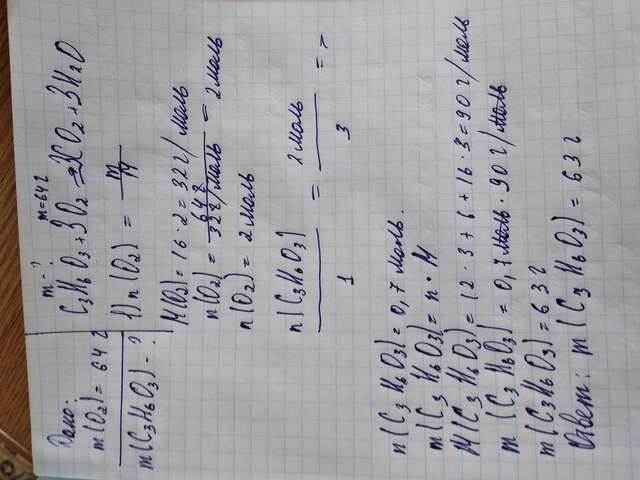 Дано:
m(O2) = 64 г
m(C3H6O3) - ?
m - ? m=64 г
C3H6O3 + 3O2 = 3CO2 + 3H2O
1) n(O2) = m/M
M(O2) = 16 · 2 = 32 г/моль
n(O2) = 64 г/32 г/моль = 2 моль
n(O2) = 2 моль
n(C3H6O3)/1 = 2 моль/3 = >
n(C3H6O3) = 0,7 моль.
m(C3H6O3) = n · M
M(C3H6O3) = 12 · 3 + 6 + 16 · 3 = 90 г/моль
m(C3H6O3) = 0,7 моль · 90 г/моль
m(C3H6O3) = 63 г
Ответ: m(C3H6O3) = 63 г